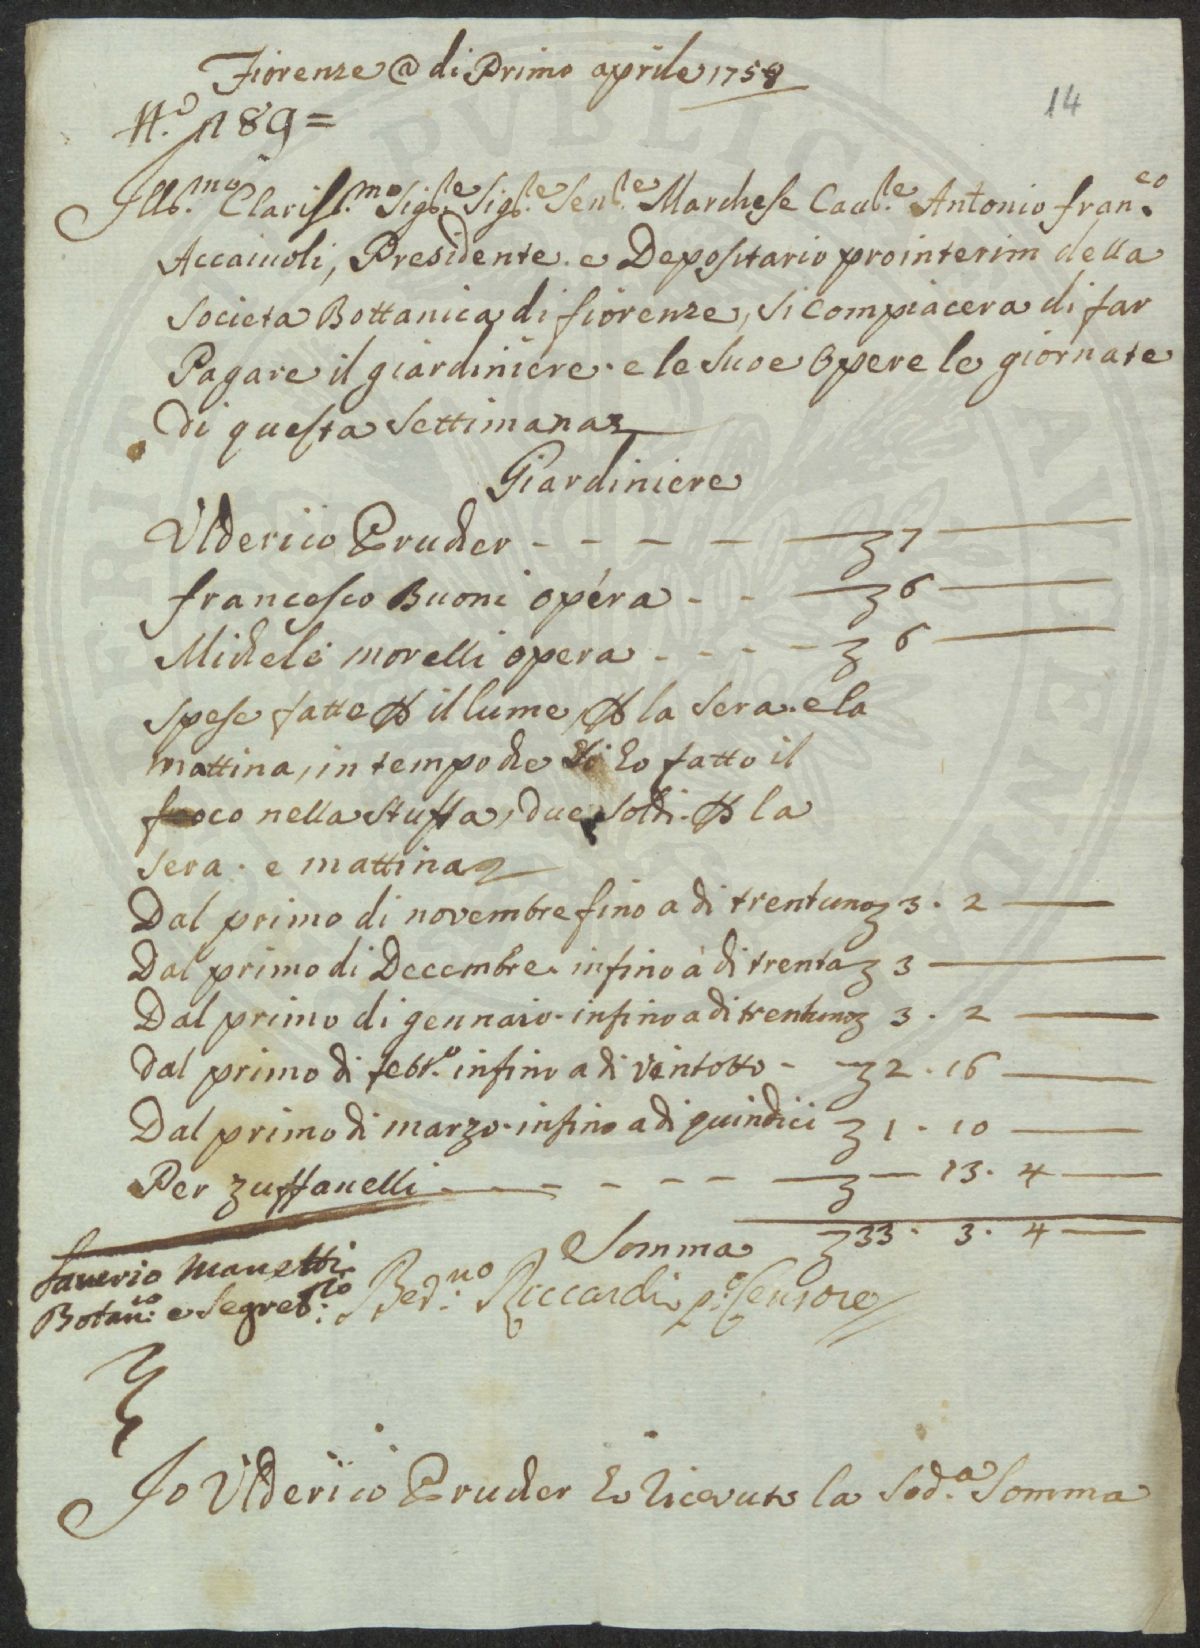 Fiorenze @ di Primo aprile 1758
14
N.º 189=
Ill.mo Clariss.mo Sig.le Sig.le Sen.le Marchese Caul.le Antonio fran.co
Accaiuoli, Presidente e Depositario prointerim della
Societa Bottanica di fiorenze, si Compiacera di far
Pagare il giardiniere e le Suoe Opere le giornate
Di questa Settimana
Giardiniere
Ulderiico Prucher - - - - 7
francesco Buoni opéra - - 6
Michele morelli opera - - - - 6
Spese fatte il lume, la Sera e la
mattina, in tempo che ho fatto il
foco nella Stuffa, due Soldi la
Sera e mattina
Dal primo di novembre fino a di trentuno 3 . 2
Dal primo di Decembre infino à di trenta 3
Dal primo di gennaio infino a di trentuno 3 . 2
Dal primo di febr.o infino a di vintotto - 2 . 16
Dal primo di marzo infino a di quindici 1 . 10
Per zuffanelli - - - - - 13 . 4
Somma 33 . 3 . 4
Saverio Manetti
Botan.co e Segret.rio
Bed.no Riccardi p.º Censore
Io Ulderiico Prucher ho Ricevuto la Sod.a Somma